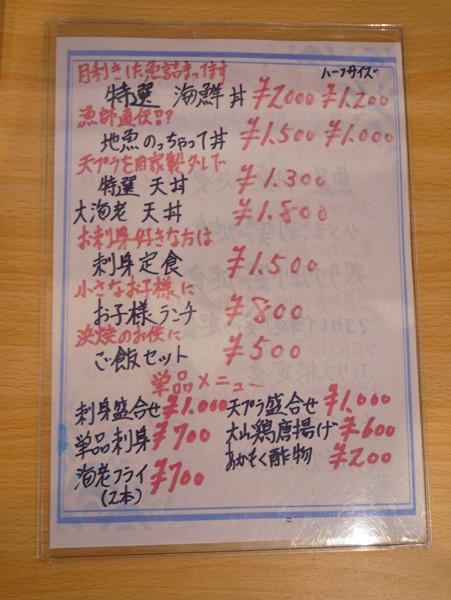 目利きした魚詰まってます
ハーフサイズ
特選 海鮮丼 ¥2000 ¥1.200
漁師直伝!?
地魚のっちゃって丼 ¥1.500 ¥1.000
天プラを自家製タレで
特選 天丼 ¥1.300
大海老 天丼 ¥1.800
お刺身好きな方は
刺身定食 ¥1.500
小さなお子様に
お子様ランチ ¥800
浜焼のお供に
ご飯セット ¥500
単品メニュー
刺身盛合せ ¥1.000 天プラ盛合せ ¥1.000
単品刺身 ¥700 大山鶏唐揚げ ¥600
海老フライ ¥700 あかもく酢物 ¥200
(2本)